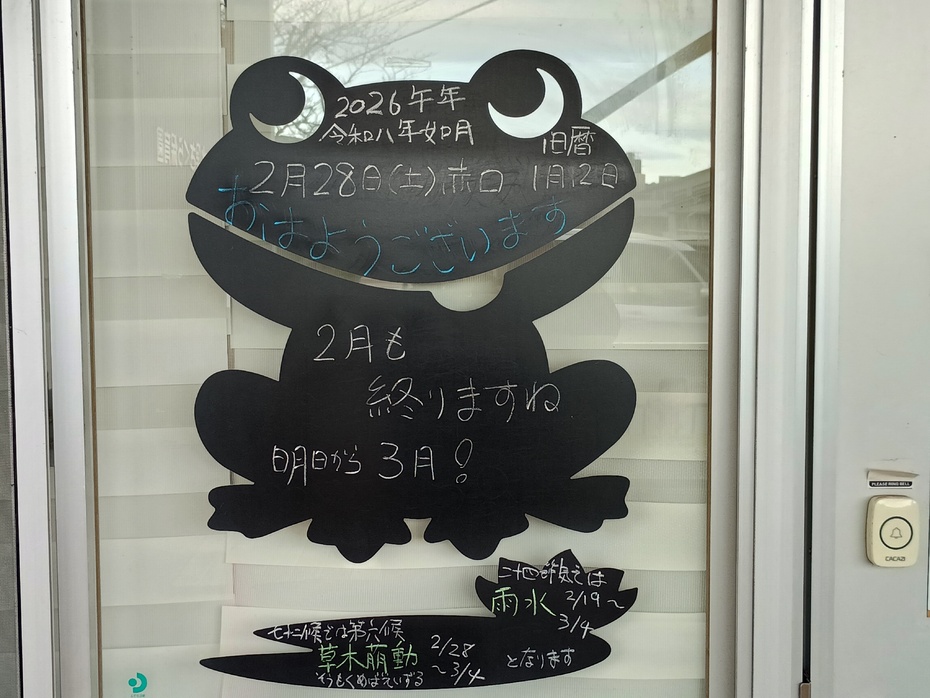 2026午年
令和八年如月
旧暦
2月28日(土)赤口 1月12日
おはようございます
2月も
終りますね
明日から3月!
二十四節気では
雨水 2/19～
3/4
七十二候では第六候
草木萌動 2/28
～3/4
そうもくめばえいずる
となります
PLEASE RING BELL
CACAZI